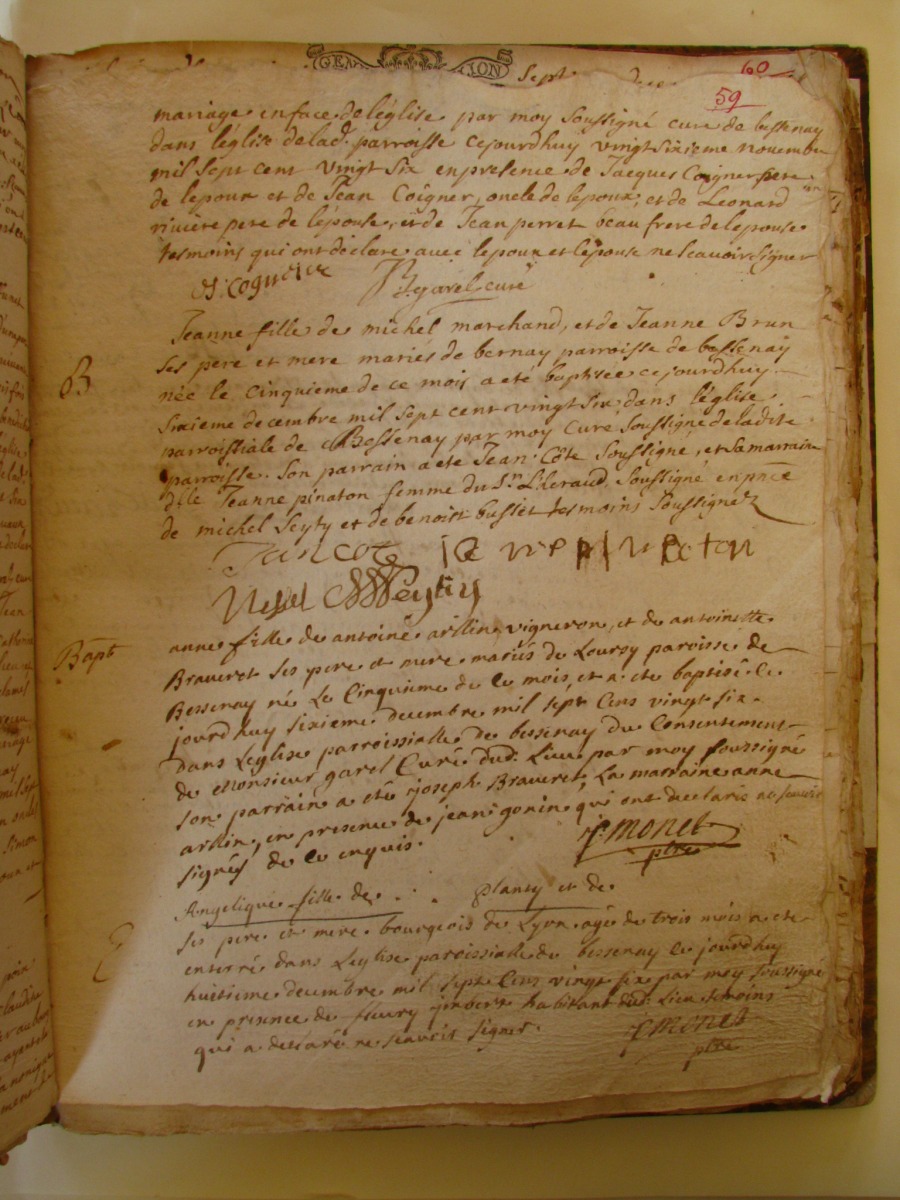 GEN TION Sept 60
59
mariage en face de léglise par moy soussigné curé de bessenay
dans léglise de lad. parroisse cejourdhuy vingt sixieme novembre
mil sept cent vingt six en presence de Jacques Coigner pere
de lepoux et de Jean Coigner, oncle de lepoux, et de Leonard
riviere pere de lépouse, et de Jean perret beau frere de lepouse
tesmoins qui ont declare avec lepoux et lépouse ne scavoir signer
B. garel curé
B
Jeanne fille de michel marchand, et de Jeanne Brun
ses pere et mere mariés de bernay parroisse de bessenay
née le cinquieme de ce mois a eté baptisée cejourdhuy
sixieme decembre mil sept cent vingt six, dans léglise
parroissiale de Bessenay par moy curé soussigné de ladite
parroisse. Son parrain a eté Jean Côte soussigné, et sa marraine
dlle Jeanne pinaton femme du Sr. Leraud soussigné en pnce
de michel Seyty et de benoist basset tesmoins soussignez
Jan cot janne pinaton
M Seytis
Bapt
anne fille de antoine arllin, vigneron, et de antoinette
Braveret ses pere et mere mariés de Loursy paroisse de
Bessenay né Le Cinquieme de Ce mois, et a ete baptisé Ce
jourdhuy sixieme decembre mil sept Cens vingt six
dans Leglise parroissialle de bessenay du Consentement
de Monsieur garel Curé dud. Lieu par moy soussigné
son parrain a eté joseph Braveret, La marraine anne
arllin, en presence de jean gonin, qui ont declaré ne scavoir
signer de Ce enquis.
monet
ptre
E
Angelique fille de . . . plancy et de
ses pere et mere bourgeois de Lyon agé de trois mois a ete
enterré dans Leglise paroissialle de bessenay Ce jourdhuy
huitieme decembre mil sept Cens vingt six par moy soussigné
en presence de fleury jmbert habitant dud. Lieu temoins
qui a declaré ne scavoir signer.
monet
ptre